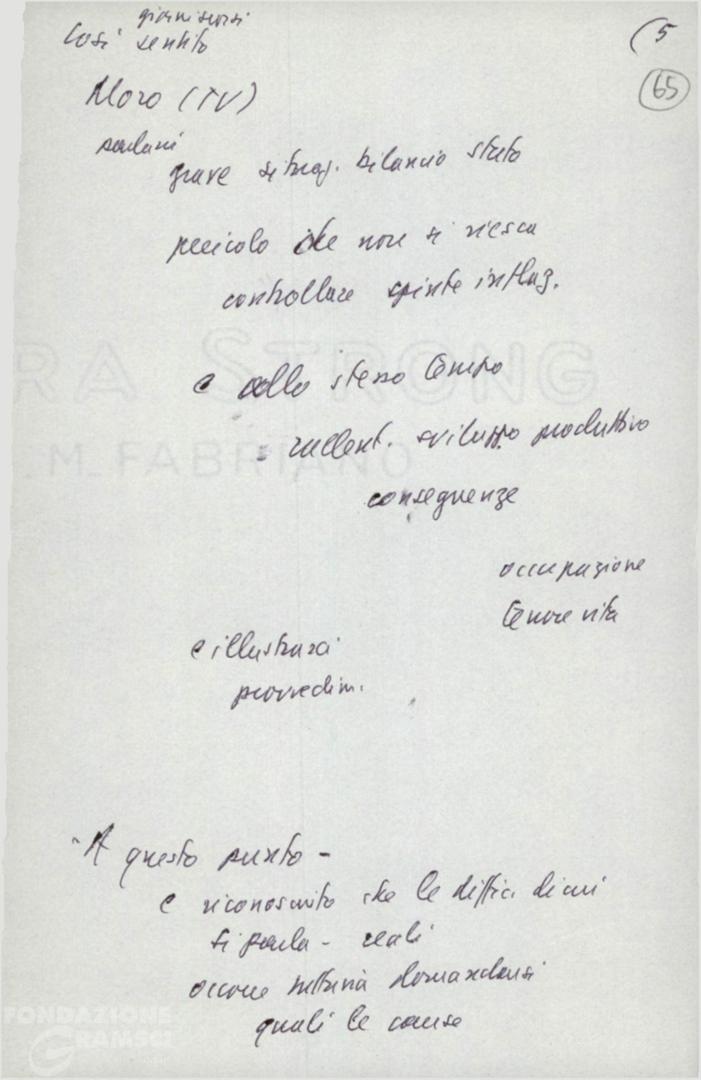 giorni scorsi
Così sentito
(5
65
Moro (TV)
parlarci
grave situaz. bilancio stato
pericolo che non si riesca
controllare spinte inflaz.
RA STRONG
e allo stesso tempo
= rallent. sviluppo produttivo
.M. FABRIANO
conseguenze
occupazione
tenore vita
e illustrarci
provvedim.
A questo punto -
e riconosciuto che le diffic. di cui
si parla - reali
occorre tuttavia domandarsi
quali le cause
FONDAZIONE
GRAMSCI